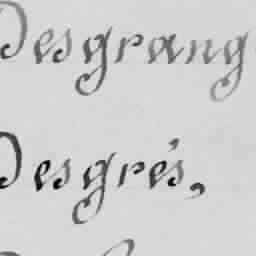 Desgrang
Desgrés,